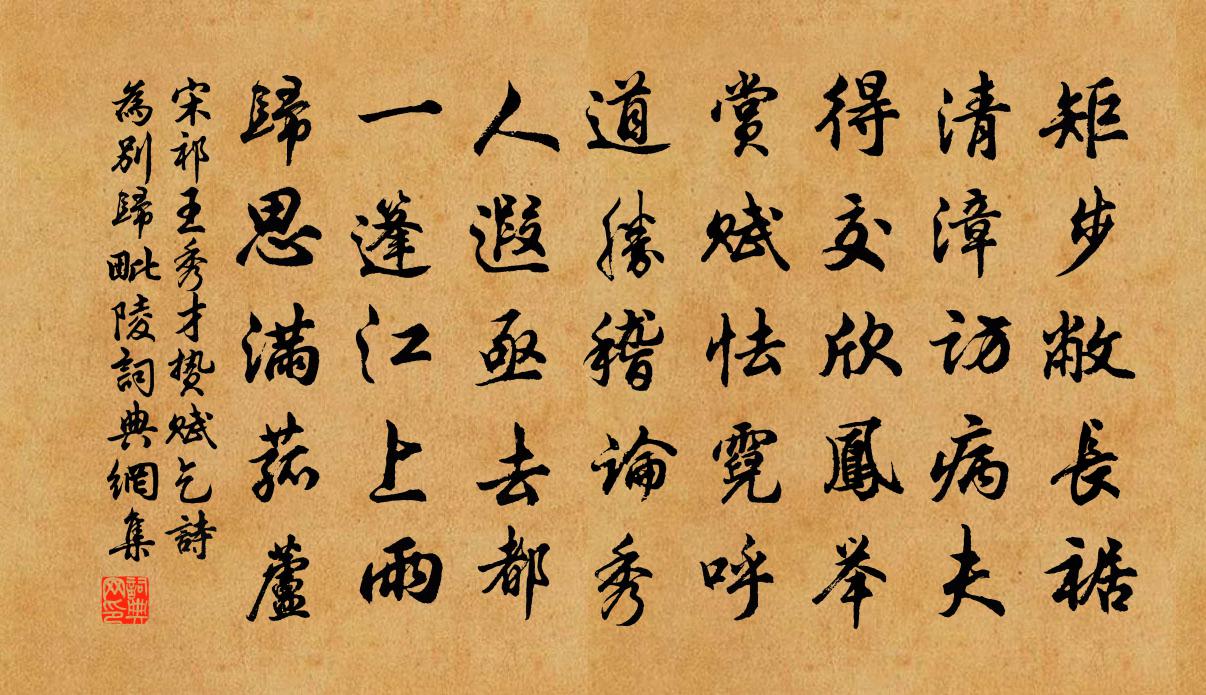 矩步敝長裾
清漳訪病夫
得交欣鳳举
賞赋怯霓呼
道勝稽論秀
人遐亟去都
一蓬江上雨
歸思满菰蘆
宋祁王秀才贽赋乞詩
為别歸毗陵詞典網集
詞典
网印